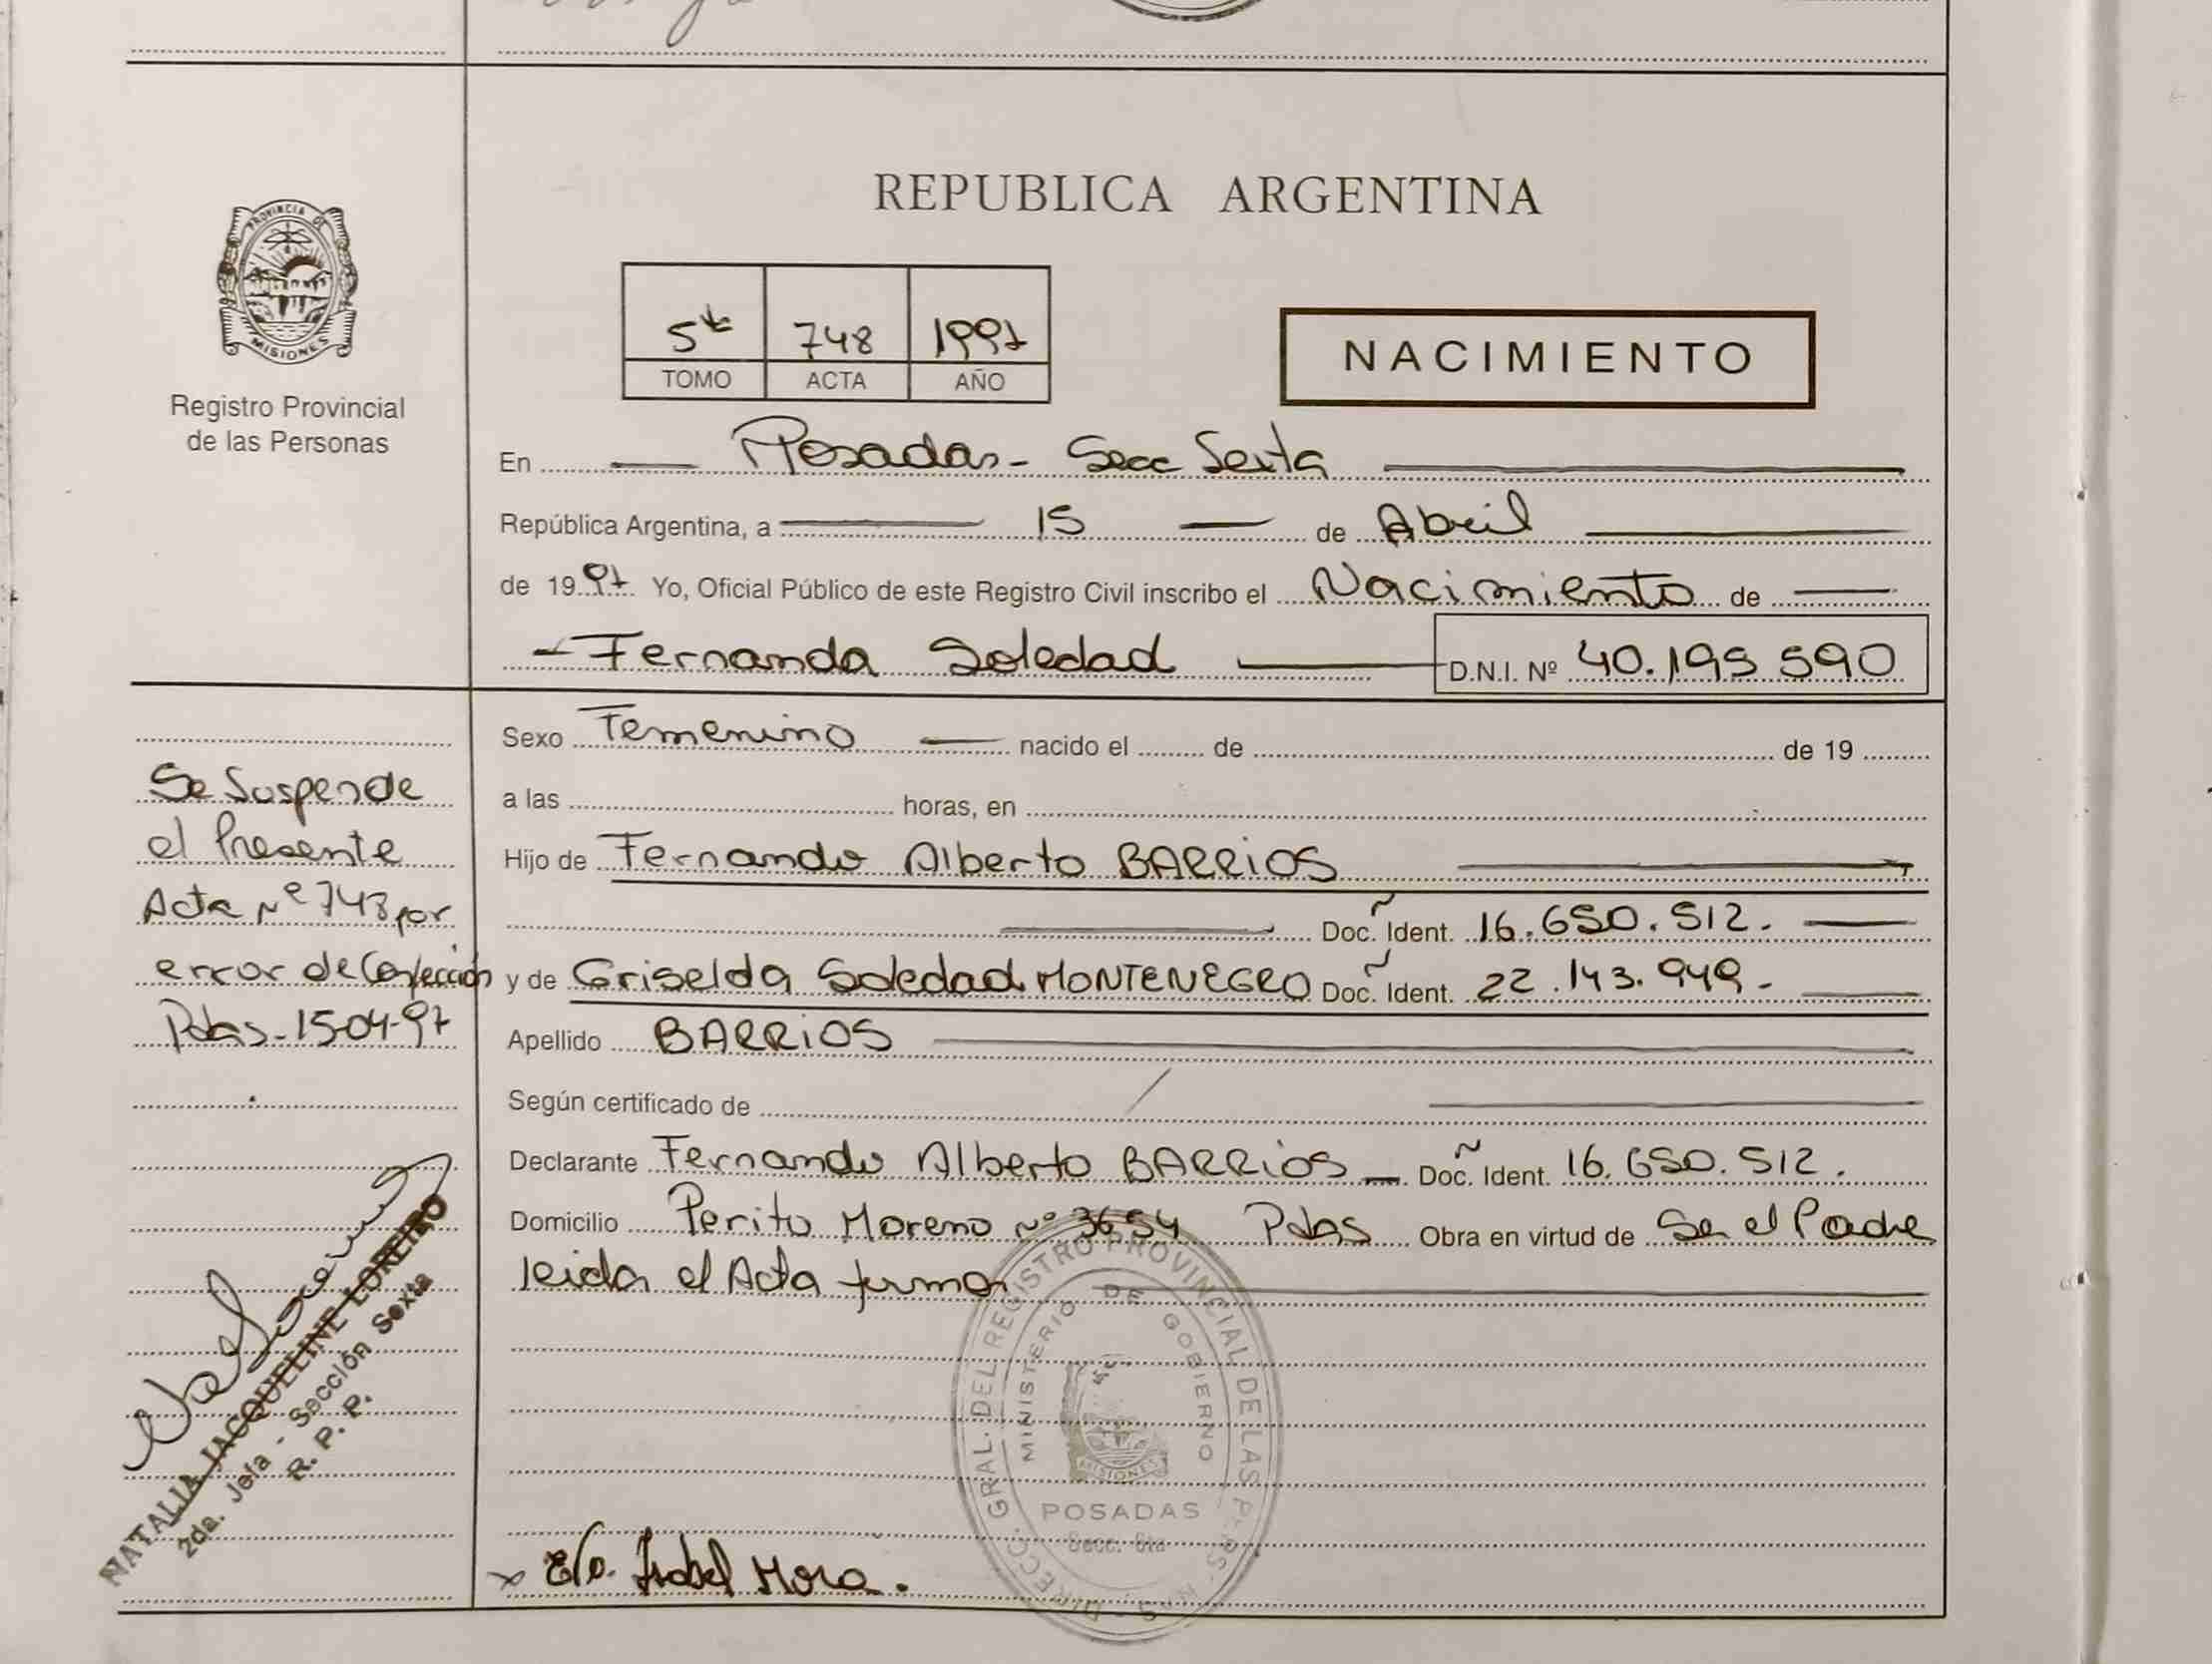 PROVINCIA DE
MISIONES
Registro Provincial
de las Personas
REPUBLICA ARGENTINA
5to 748 1997
TOMO ACTA AÑO
NACIMIENTO
En Posadas - Secc Sexta
República Argentina, a 15 de Abril
de 1997 Yo, Oficial Público de este Registro Civil inscribo el Nacimiento de
Fernanda Soledad D.N.I. Nº 40.195 590
Sexo Femenino nacido el de de 19
a las horas, en
Hijo de Fernando Alberto BARRIOS
Doc. Ident. 16.650.512.
y de Griselda Soledad MONTENEGRO Doc. Ident. 22.143.949.-
Apellido BARRIOS
Según certificado de
Declarante Fernando Alberto BARRIOS - Doc. Ident. 16.650.512.
Domicilio Perito Moreno nº 3654 Pdas Obra en virtud de Ser el Padre
leida el Acta firma
Se Suspende
el Presente
Acta Nº 748 por
error de Confección
Pdas-15-04-97
NATALIA JACQUELINE LOREIRO
2da. Jefa - Sección Sexta
R. P. P.
DIRECC. GRAL. DEL REGISTRO PROVINCIAL DE LAS PERSONAS
MINISTERIO DE GOBIERNO
MISIONES
POSADAS
Secc. 6ta
x E/o. Isabel Mora.